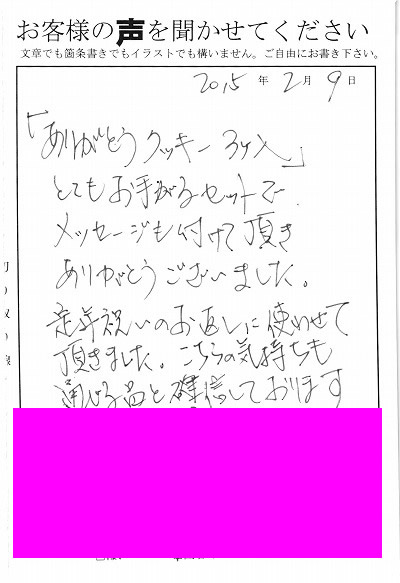 お客様の声を聞かせてください
文章でも箇条書きでもイラストでも構いません。ご自由にお書き下さい。
2015 年 2月 9日
「ありがとうクッキー3ヶ入」
とてもお手がるセットで
メッセージも付けて頂き
ありがとうございました。
定年祝いのお返しに使わせて
頂きました。こちらの気持ちも
通じる品と確信しております